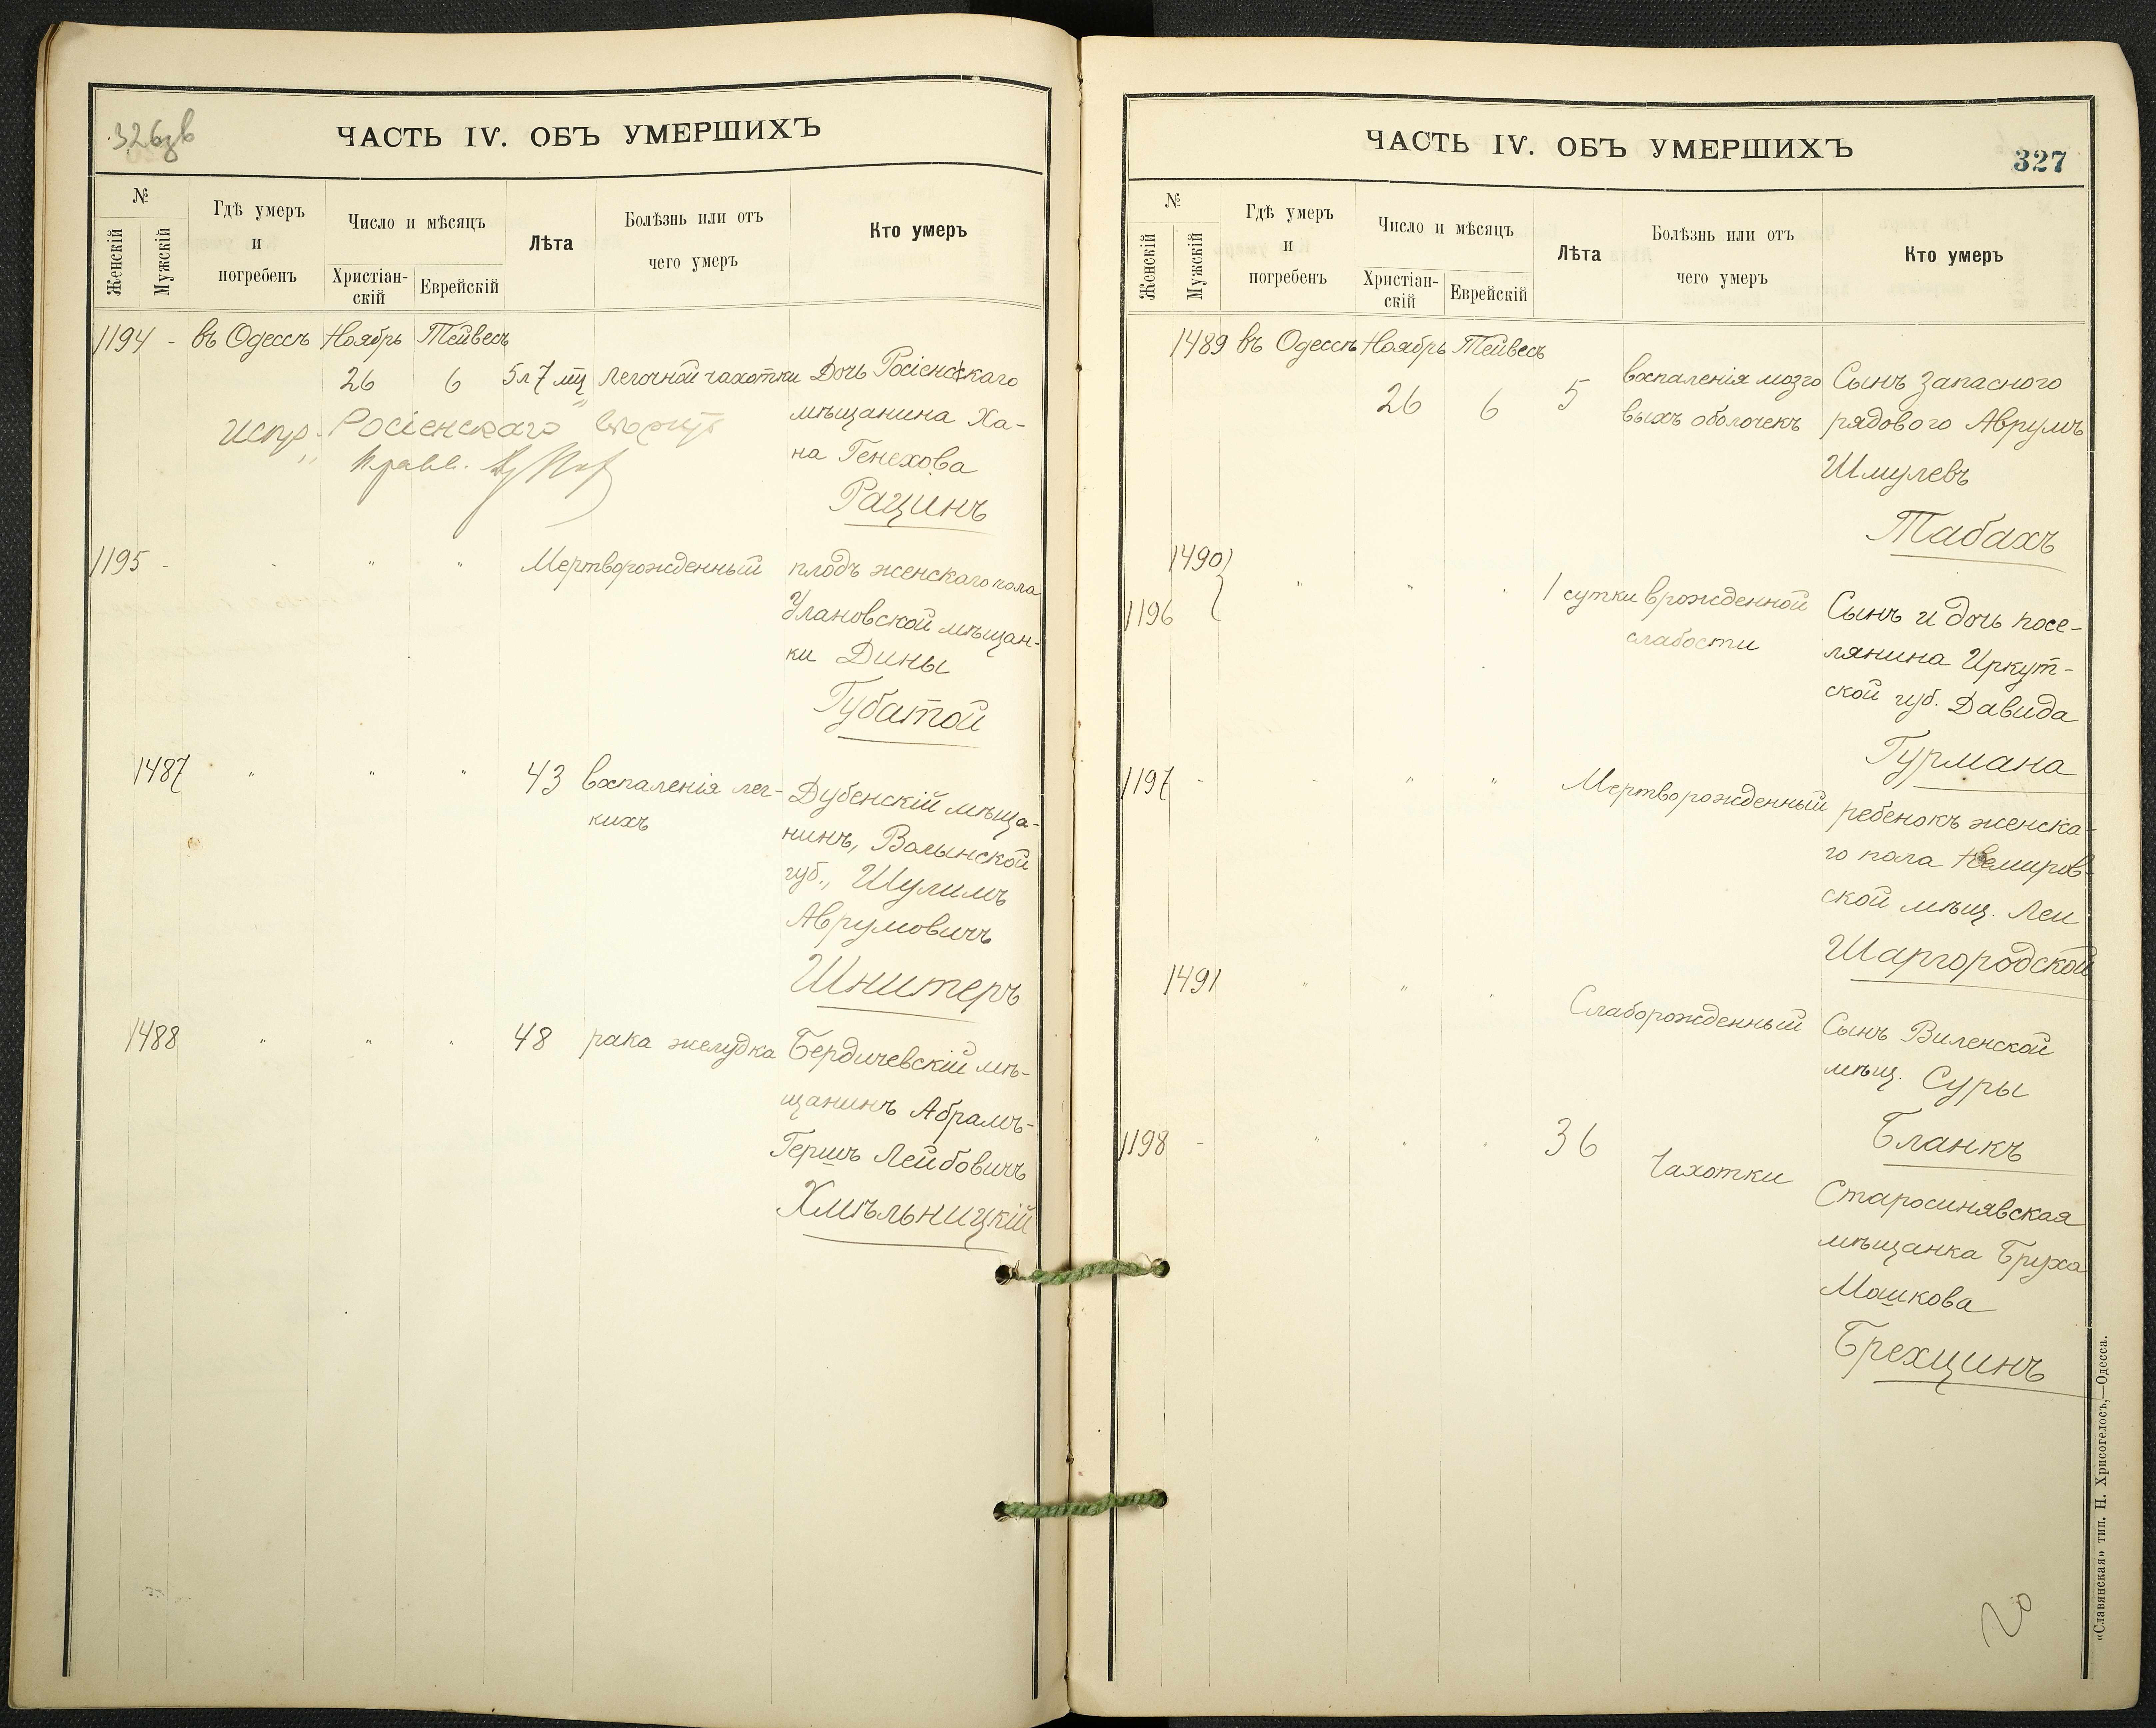 326 зв
ЧАСТЬ IV. ОБЪ УМЕРШИХЪ
№
Женскій
Мужскій
Гдѣ умеръ
и
погребенъ
Число и мѣсяцъ
Христіан-
скій
Еврейскій
Лѣта
Болѣзнь или отъ
чего умеръ
Кто умеръ
1194 - въ Одессѣ Ноябрь Тейвесъ
26 6 5 л 7 мц Легочной чахотки Дочь Росіенскаго
мѣщанина Ха-
на Генехова
Рацинъ
Испр. „Росіенскаго“ вѣрно
1195 - " " Мертворожденный плодъ женскаго пола
Улановской мѣщан-
ки Дины
Губатой
1487 " " " 43 воспаленія лег- Дубенскій мѣща-
кихъ
нинъ, Волынской
губ., Шулимъ
Аврумовичъ
Шнитеръ
1488 " " " 48 рака желудка Бердичевскій мѣ-
щанинъ Абрамъ-
Гершъ Лейбовичъ
Хмѣльницкій
ЧАСТЬ IV. ОБЪ УМЕРШИХЪ
327
№
Женскій
Мужскій
Гдѣ умеръ
и
погребенъ
Число и мѣсяцъ
Христіан-
скій
Еврейскій
Лѣта
Болѣзнь или отъ
чего умеръ
Кто умеръ
1489 въ Одессѣ Ноябрь Тейвесъ
26 6 5 воспаленія мозго Сынъ запасного
выхъ оболочекъ рядового Аврумъ
Шмулевъ
Табахъ
1490
1196 " " " 1 сутки врожденной Сынъ и дочь посе-
слабости
лянина Иркут-
ской губ. Давида
Гурмана
1197 - - " " Мертворожденный ребенокъ женска-
го пола Немиров-
ской мѣщ. Леи
Шаргородской
1491 " " " Слаборожденный Сынъ Виленской
мѣщ. Суры
Бланкъ
1198 - " " " 36 Чахотки
Старосинявская
мѣщанка Бруха
Мошкова
Брехцинъ
«Славянская» тип. Н. Хрисогелосъ,—Одесса.